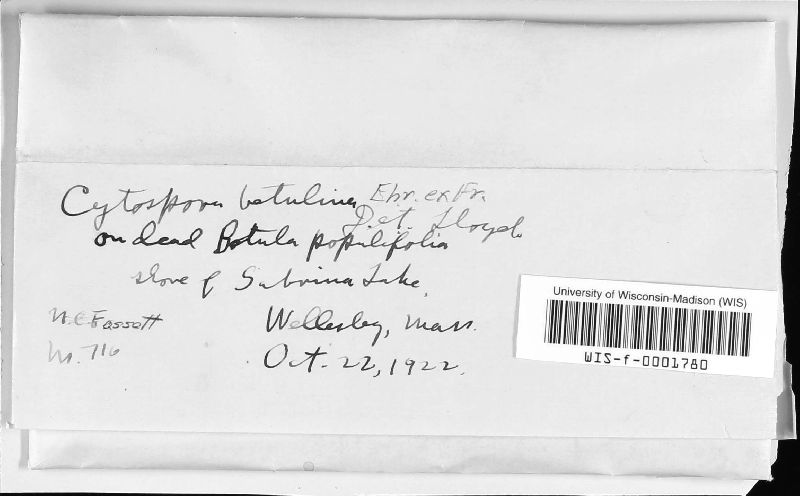 Cytospora betulina Ehr. ex Fr.
Det. Lloyd.
on dead Betula populifolia
shore of Sabrina Lake,
N.C. Fassett
Wellesley, Mass.
No. 716
Oct. 22, 1922.
University of Wisconsin-Madison (WIS)
WIS-f-0001780